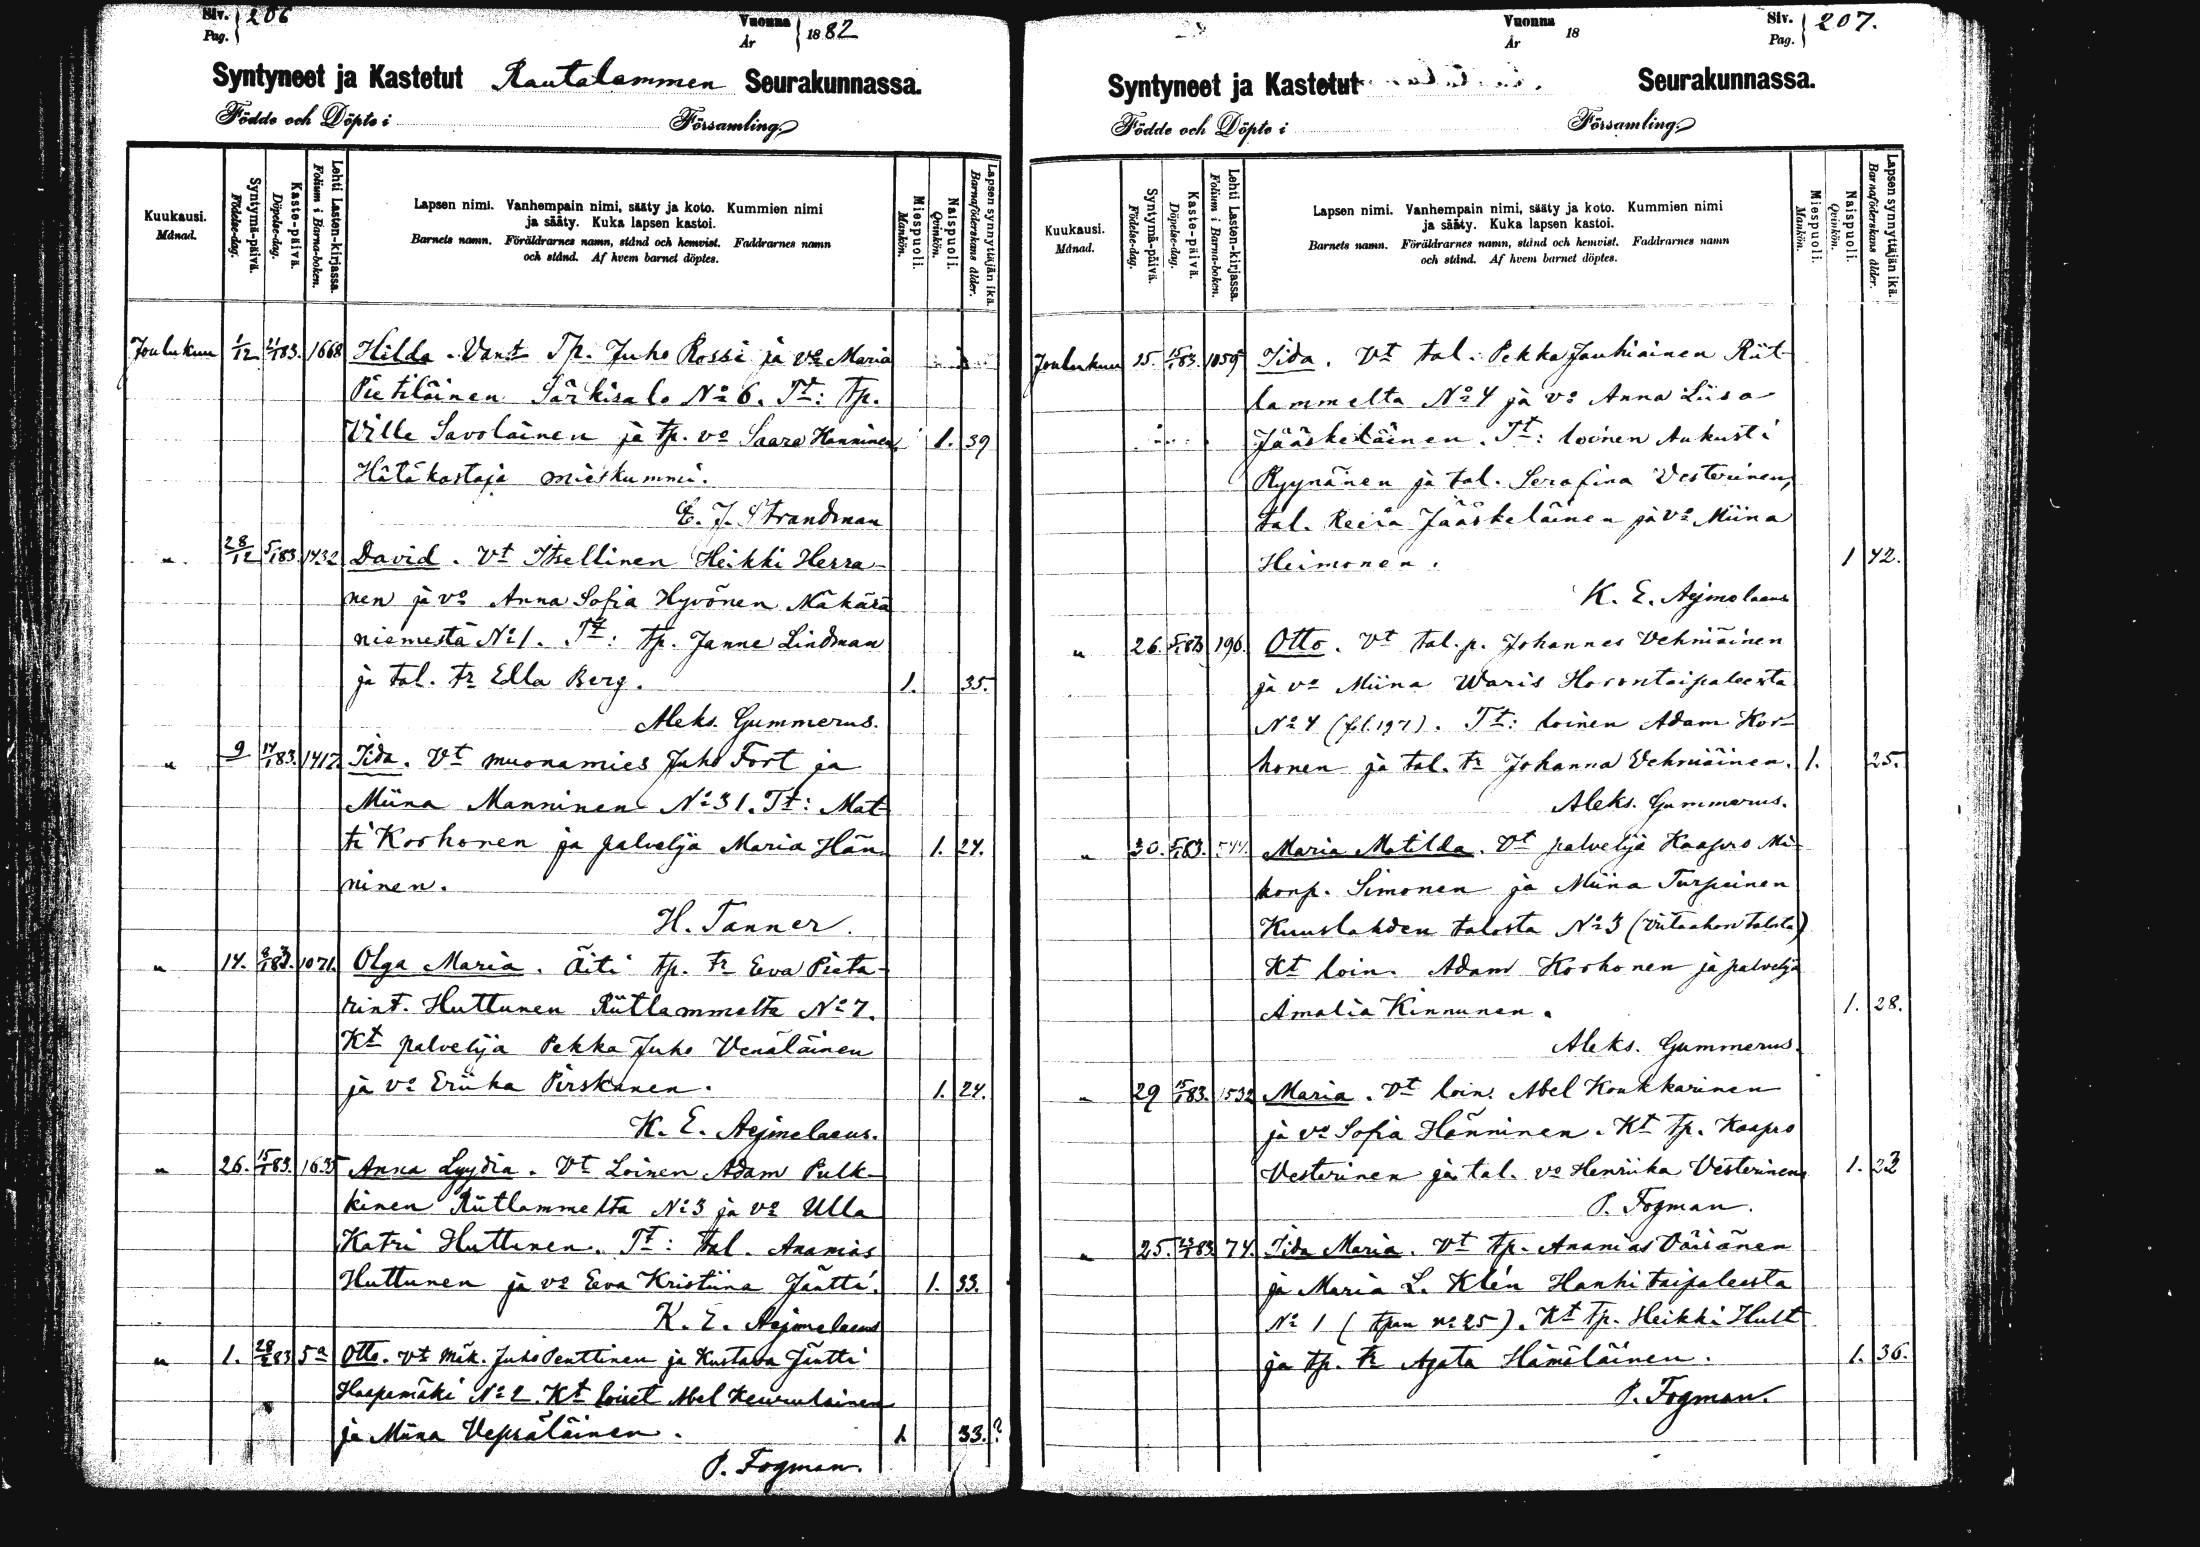 Siv. Pag. 206
Vuonna År 1882
Syntyneet ja Kastetut Rautalammen Seurakunnassa.
Födde och Döpte i Församling.
Kuukausi. Månad.
Syntymä-päivä. Födelse-dag.
Kaste-päivä. Döpelse-dag.
Lehti Lasten-kirjassa. Folium i Barna-boken.
Lapsen nimi. Vanhempain nimi, sääty ja koto. Kummien nimi
ja sääty. Kuka lapsen kastoi.
Barnets namn. Föräldrarnes namn, stånd och hemvist. Faddrarnes namn
och stånd. Af hvem barnet döptes.
Miespuoli. Mankön.
Naispuoli. Qvinkön.
Lapsen synnyttäjän ikä. Barnaföderskans ålder.
Joulukuu 1/12 83. 1668 Hilda. Vanht Tp. Juho Rossi ja vo Maria
Pietiläinen Särkisalo No 6. Tt: tp.
Ville Savolainen ja tp. vo Saara Hänninen 1. 39
Hätäkastaja mieskummi.
E. J. Strandman
" 28/12 5/1 83 1432 David. Vt Itsellinen Heikki Herra-
nen ja vo Anna Sofia Hyvönen Näkärä
niemestä No 1. Tt: tp. Janne Lindman
ja tal. tr Edla Berg. 1. 35.
Aleks. Gummerus.
" 9 14/1 83. 1417. Iida. Vt muonamies Juho Fort ja
Miina Manninen No 31. Tt: Mat-
ti Korhonen ja palvelja Maria Hän- 1. 24.
ninen.
H. Tanner.
" 14. 83. 1071. Olga Maria. Äiti tp. tr Eeva Pieta-
rint. Huttunen Riitlammelta No 7.
Kt palvelija Pekka Juho Venäläinen
ja vo Eriika Pirskanen. 1. 24.
K. E. Aejmelaeus.
" 26. 15/1 83. 1635 Anna Lyydia. Vt Loinen Adam Pulk-
kinen Riitlammelta No 3 ja vo Ulla
Katri Huttunen. Tt: tal. Ananias
Huttunen ja vo Eeva Kristiina Jäntti. 1. 33.
K. E. Aejmelaeus
" 1. 28/2 83 5a Otto. Vt mäk. Juho Penttinen ja Kustava Jäntti
Haapamäki No 2. Kt loiset Abel Keurulainen
ja Miina Vepsäläinen. 1. 33.?
P. Fogman.
Vuonna År 18
Siv. Pag. 207.
Syntyneet ja Kastetut Seurakunnassa.
Födde och Döpte i Församling.
Kuukausi. Månad.
Syntymä-päivä. Födelse-dag.
Kaste-päivä. Döpelse-dag.
Lehti Lasten-kirjassa. Folium i Barna-boken.
Lapsen nimi. Vanhempain nimi, sääty ja koto. Kummien nimi
ja sääty. Kuka lapsen kastoi.
Barnets namn. Föräldrarnes namn, stånd och hemvist. Faddrarnes namn
och stånd. Af hvem barnet döptes.
Miespuoli. Mankön.
Naispuoli. Qvinkön.
Lapsen synnyttäjän ikä. Barnaföderskans ålder.
Joulukuu 25. 15/1 83. 1059 Iida. Vt tal. Pekka Jauhiainen Riit-
lammelta No 4 ja vo Anna Liisa
Jääskeläinen. Tt: loinen Aukusti
Ryynänen ja tal. Serafina Vesterinen,
tal. Jääskeläinen ja vo Miina
Heimonen. 1 42.
K. E. Aejmelaeus
" 26. 5/1 83 196. Otto. Vt tal.p. Johannes Vehniäinen
ja vo Miina Waris Horontaipaleesta
No 4 (fol. 197). Tt: loinen Adam Kor-
honen ja tal. tr Johanna Vehniäinen. 1. 25.
Aleks. Gummerus.
" 30. 5/1 83. Maria Matilda. Vt palvelijä Kaapro Mi-
konp. Simonen ja Miina Turpeinen
Kuuslahden talosta No 3 (Viitaahon talosta)
Kt loin. Adam Korhonen ja palvelja
Amalia Kinnunen. 1. 28.
Aleks. Gummerus.
" 29 15/1 83. 1532 Maria. Vt loin. Abel Koukkarinen
ja vo Sofia Hänninen. Kt tp. Kaapro
Vesterinen ja tal. vo Henriika Vesterinen 1. 23
P. Fogman.
" 25. 83 74. Iida Maria. Vt tp. Ananias Väisänen
ja Maria L. Klén Hankitaipaleesta
No 1 (tpan no 25). Kt tp. Heikki Hult
ja tp. tr Agata Hämäläinen. 1. 36.
P. Fogman.